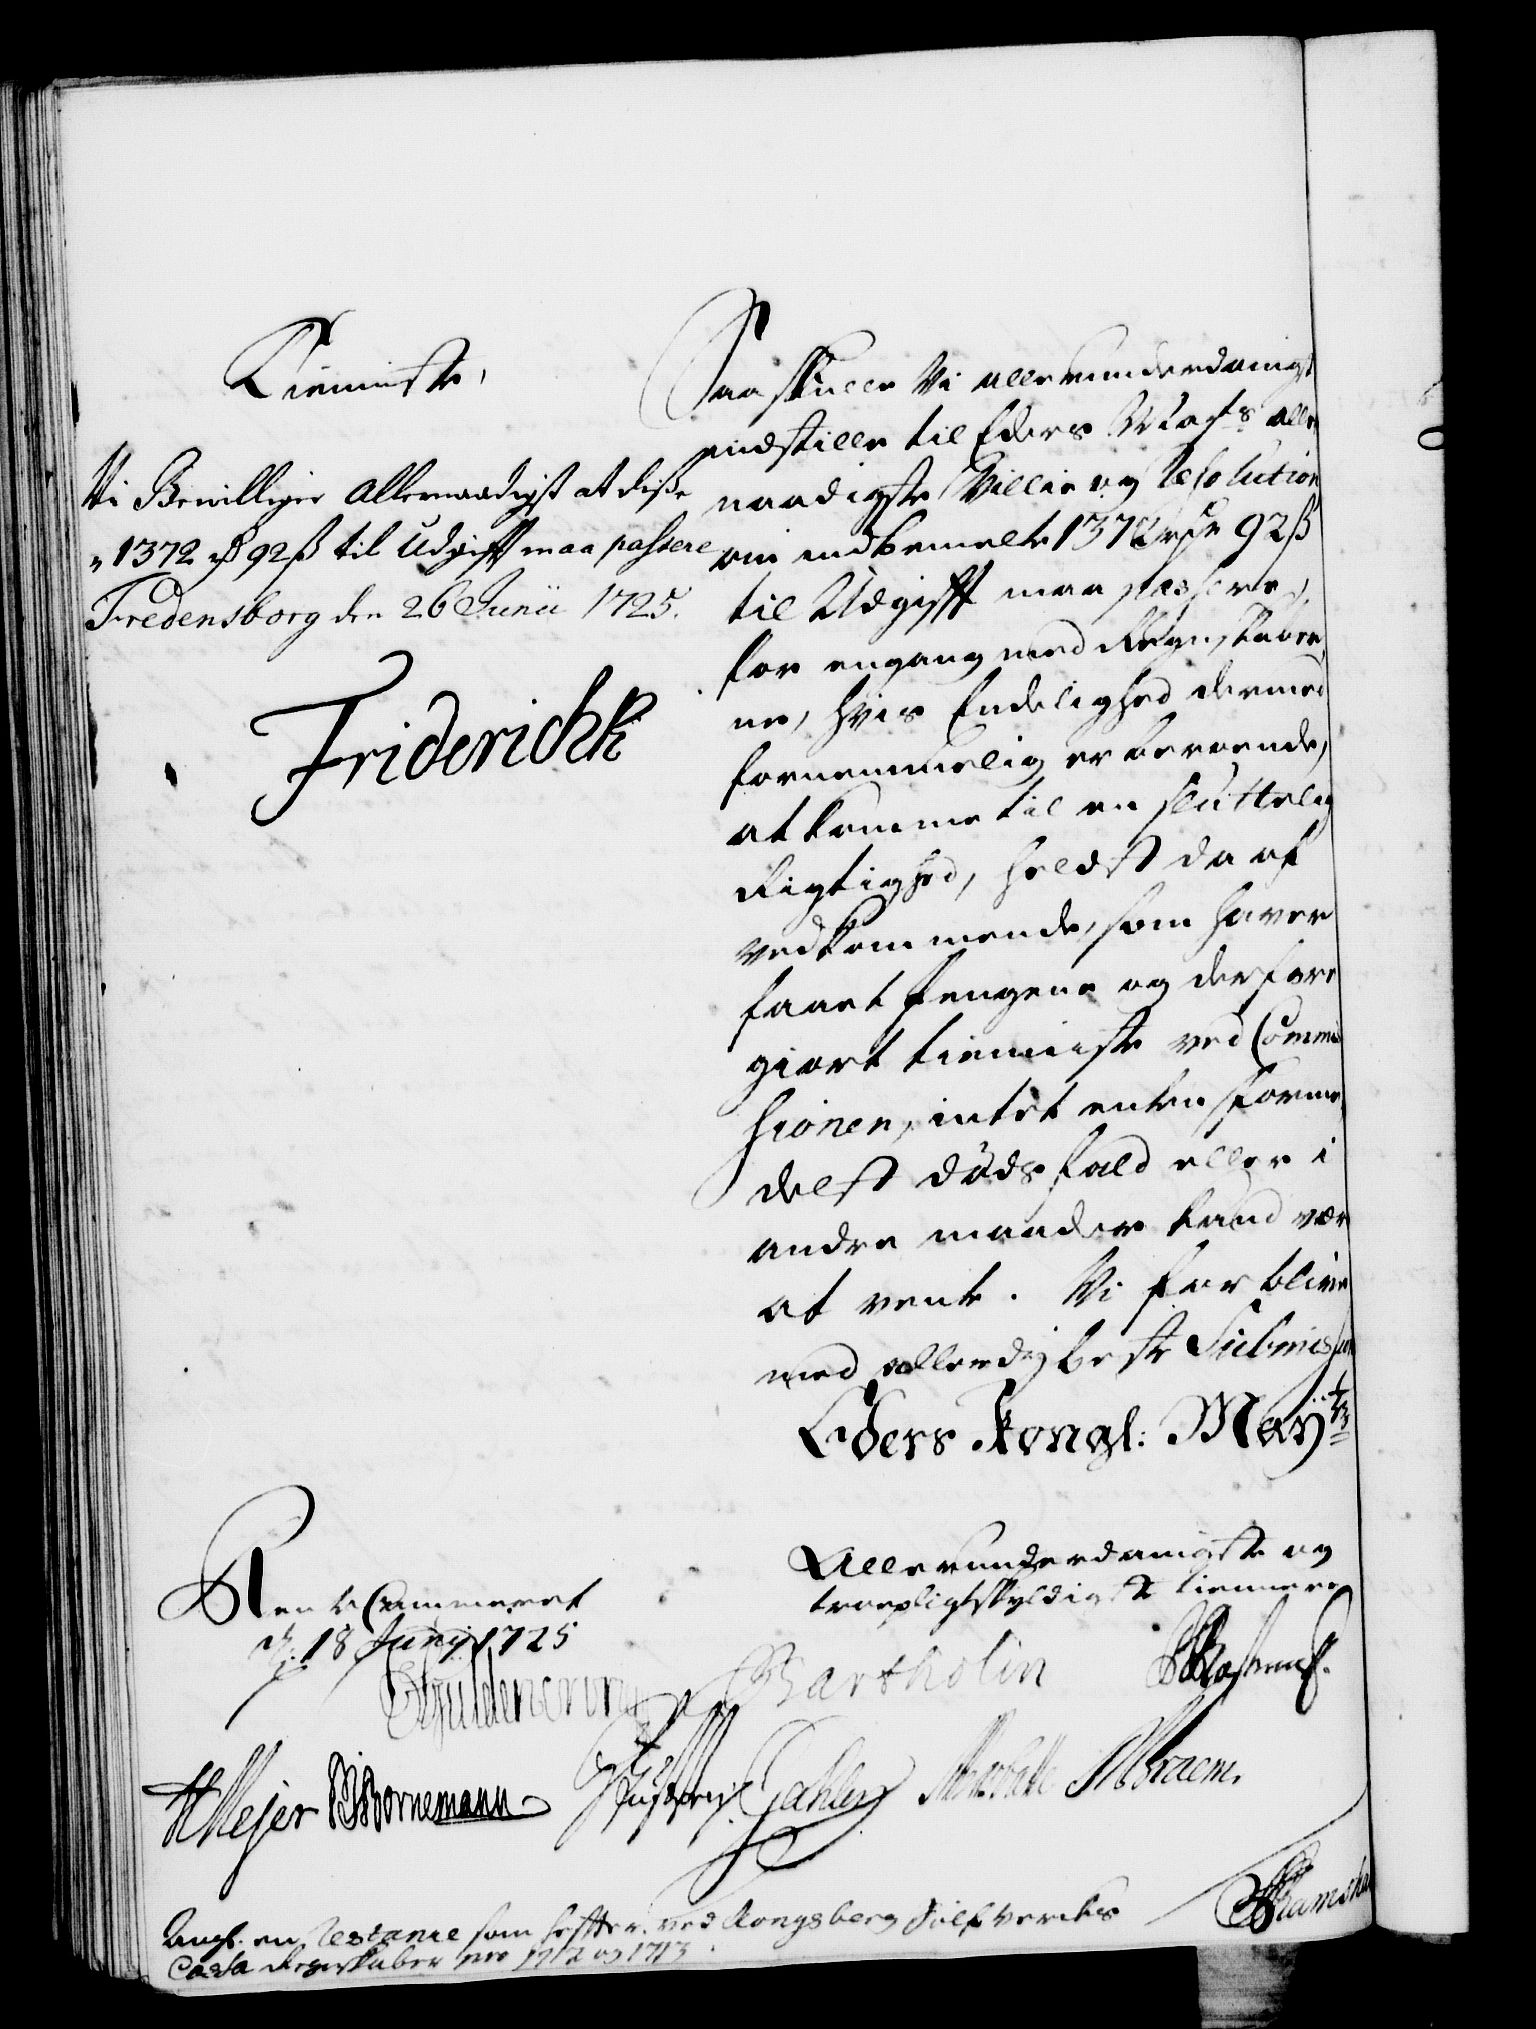 Tienniste,
Vi Bevilliger Allernaadigst at disse
„1372 rd 92 ß til Udgift maa passere
Fredensborg den 26 Junii 1725.
Friderich R
Saa skulle Vi allerunderdanigst
indstille til Eders Mayts. aller
naadigste Villie og Resolution
om indbemelte 1372 rdr 92 ß
til Udgifft maa passere,
for engang med Regnskaber
ne, hvis Endelighed dermed
fornemmelig er beroende,
at komme til en sluttelig
Rigtighed, heldst da af
vedkommende, som haver
faaet pengene og derfore
giort tienniste ved Commis
sionen, intet enten forme
delst dødsfald eller i
andre maader kand være
at vente. Vi forblive
med allerdybeste Submission
Eders Kongl: Mayts
Allerunderdanigste og
troepligtskyldigste tiennere
Rente Cammeret
d. 18 Junij 1725
Gyldencrone Bartholin
HMejer Bornemann
Angl. en Restance som hefter ved Kongsberg Sølfverks
Cassa Regnskaber pro 1712 og 1713.